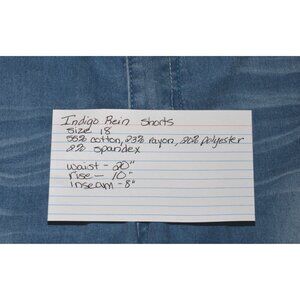 Indigo Rein shorts
size 18
55% cotton, 23% rayon, 20% polyester
2% spandex
waist - 20"
rise - 10"
inseam - 8"